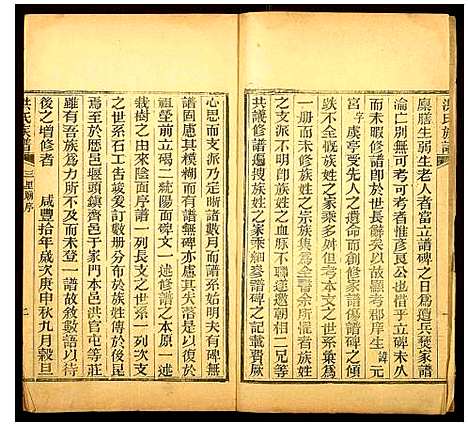 洪氏族譜
廩膳生弱生老人者當立譜碑之日為遭兵燹家譜
淪亡別無可考有可考者惟彥良公耳立碑未久
而未暇修譜即於世長辭矣以故顯考郡庠生諱元
宮字虞亭受先人之遺命而創修家譜傷譜碑之
跌不全念族姓之家乘但考本支之世系藁為
一冊而未修族姓之宗族集為全書余所深者族姓
之支派不紊族姓之血脈不聯遂邀朝相二兄等
共議修譜遍搜族姓之家乘細參譜碑之記載費厥
心思而支派乃定晰諸數月而譜系始明夫有碑無
譜固慮其模糊而有譜無碑亦慮其失落是以復於
祖塋前立碣二統陽面碑文一述修譜之本來一述
修樹之由來陰面序譜一列長支之世系一列次支
之世系石工告竣乃訂數冊分布於族姓傳於後昆
焉至於歷邑堰頭鎮齊邑于家門本邑洪官屯等莊
雖有吾族為力所不及而未登一譜故敘數語以待
後之增修者
咸豐拾年歲次庚申秋九月穀旦
洪氏族譜
三里廟序
二